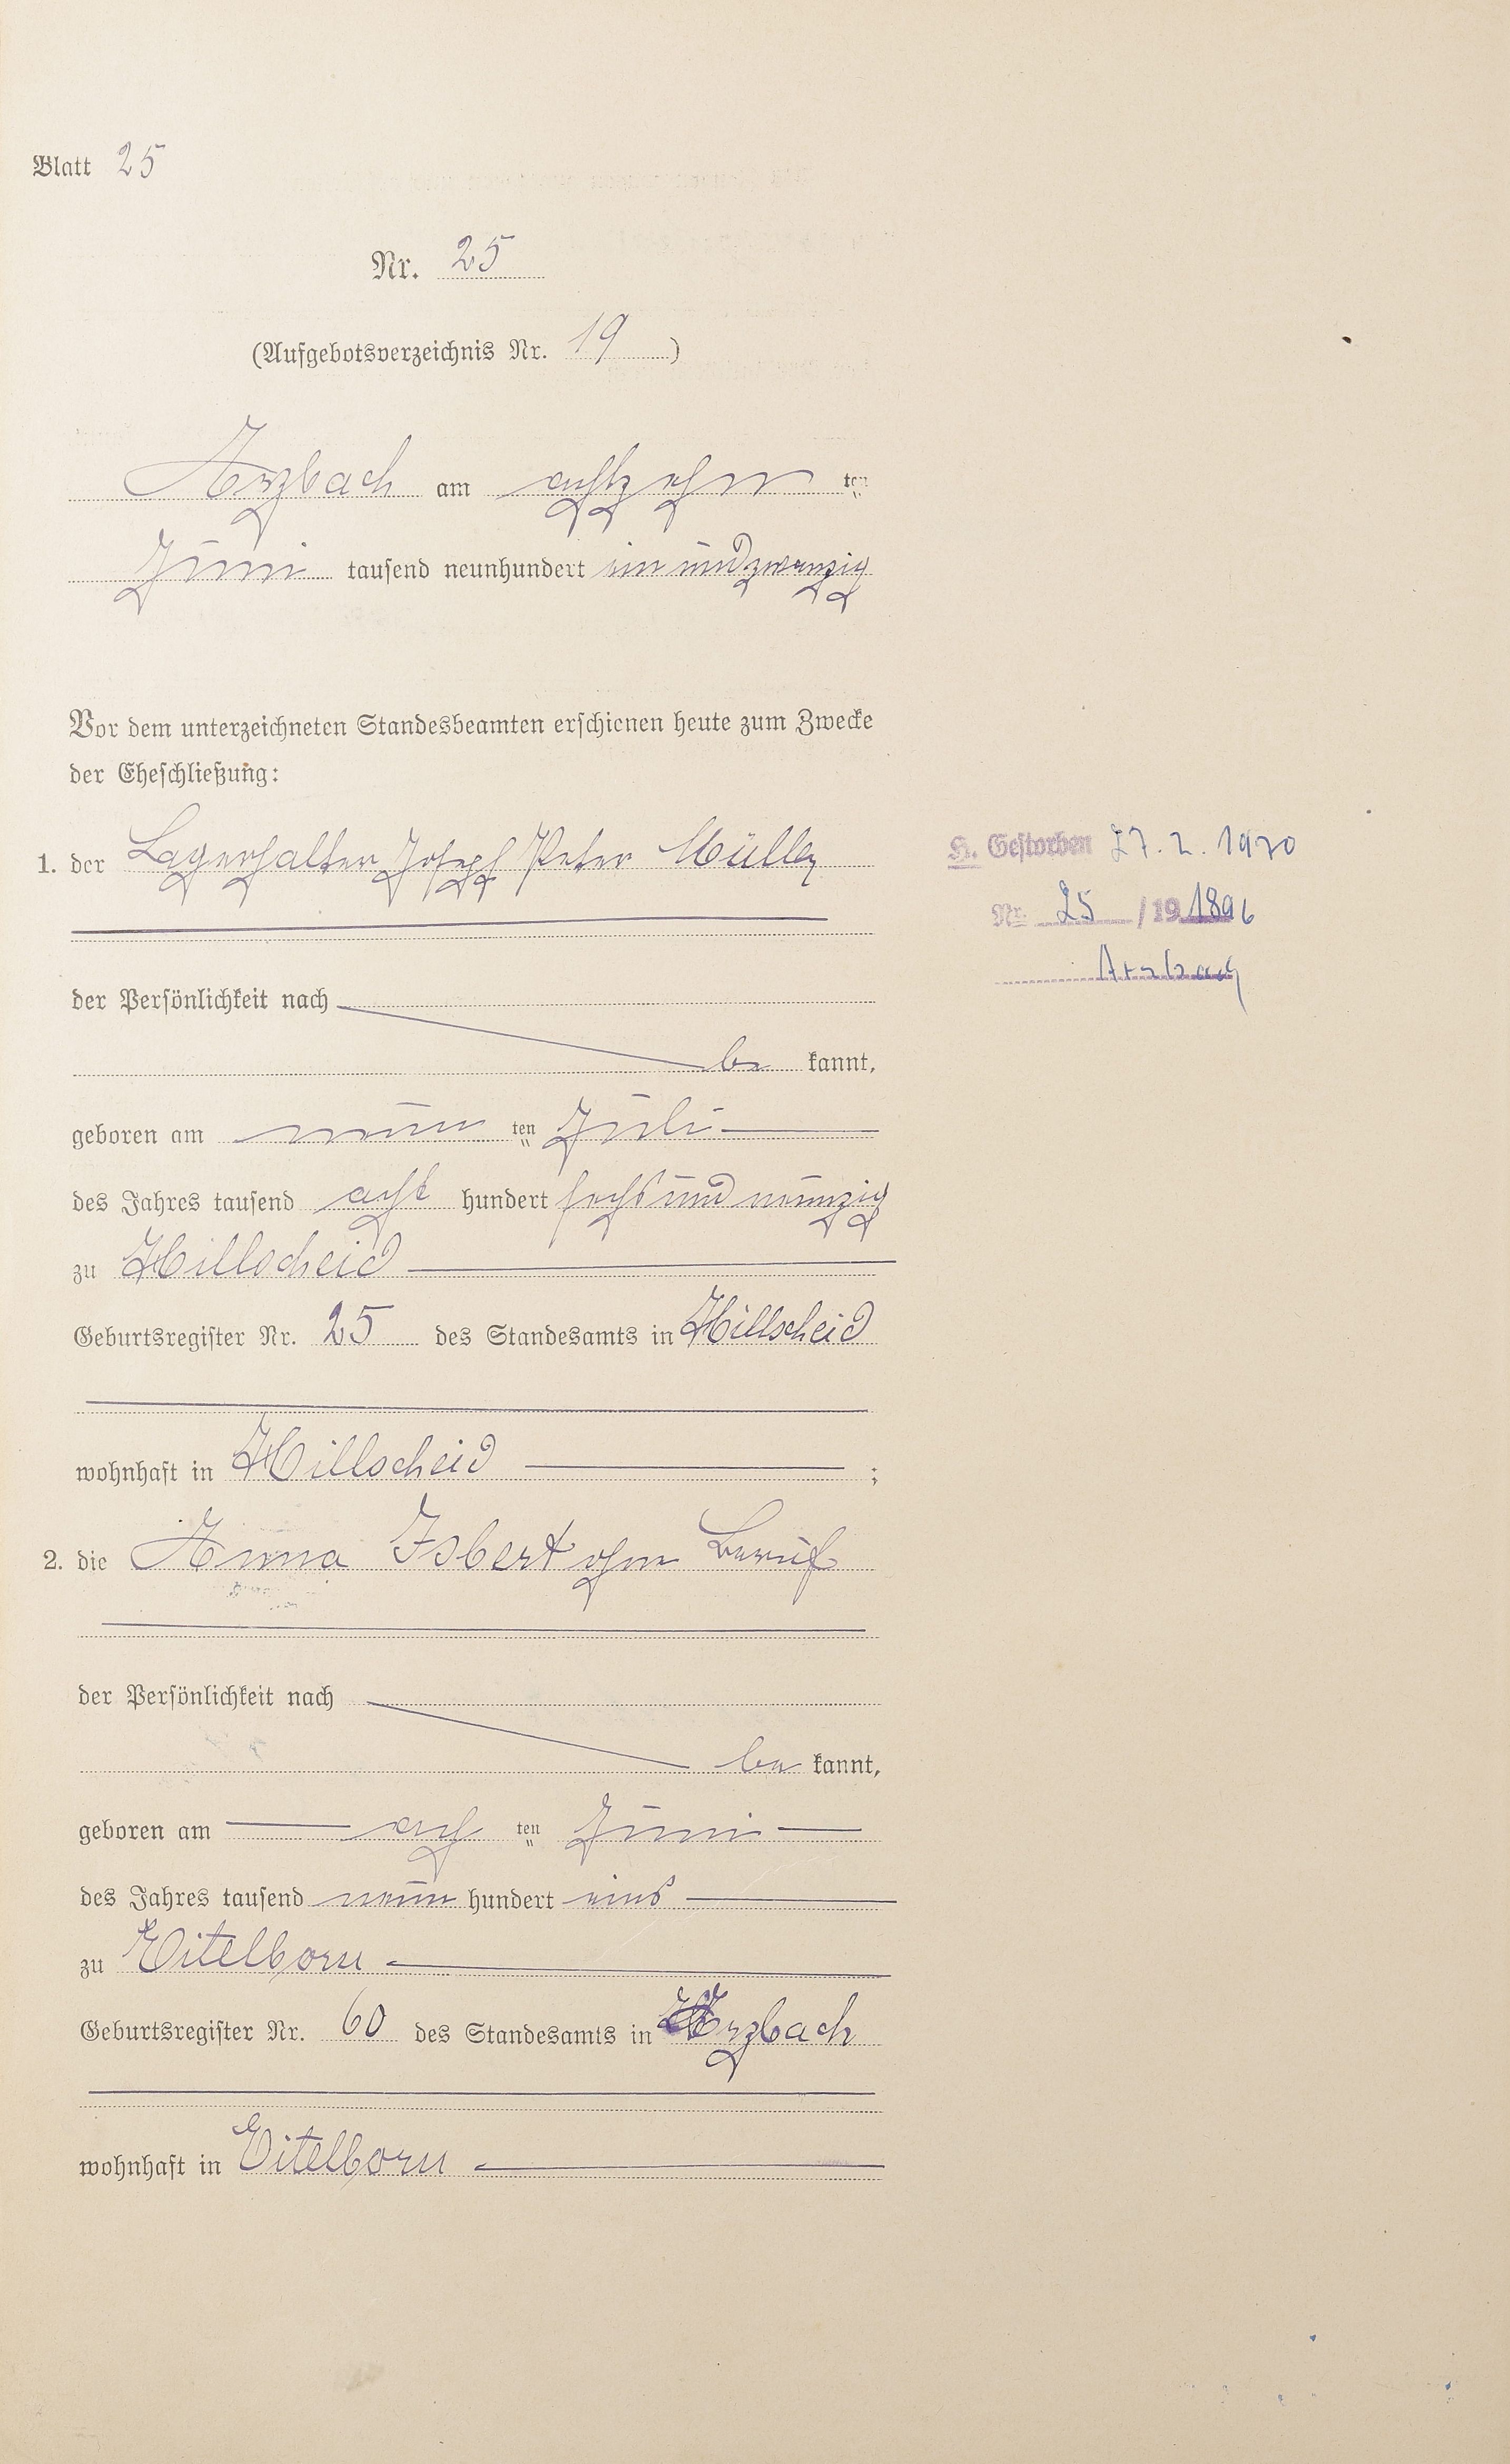 Blatt 25
Nr. 25
(Aufgebotsverzeichnis Nr. 19)
Arzbach am achtzehn ten
Juni tausend neunhundert ein und zwanzig
Vor dem unterzeichneten Standesbeamten erschienen heute zum Zwecke
der Eheschließung:
1. der Lagerhalter Joseph Peter Müller
der Persönlichkeit nach
be kannt,
geboren am neun ten Juli
des Jahres tausend acht hundert sechs und neunzig
zu Hillscheid
Geburtsregister Nr. 25 des Standesamts in Hillscheid
wohnhaft in Hillscheid ;
2. die Anna Isbert ohne Beruf
der Persönlichkeit nach
be kannt,
geboren am ach ten Juni
des Jahres tausend neun hundert eins
zu Eitelborn
Geburtsregister Nr. 60 des Standesamts in Arzbach
wohnhaft in Eitelborn
H. Gestorben 27. 2. 1970
Nr. 25 / 19 1896
Arzbach